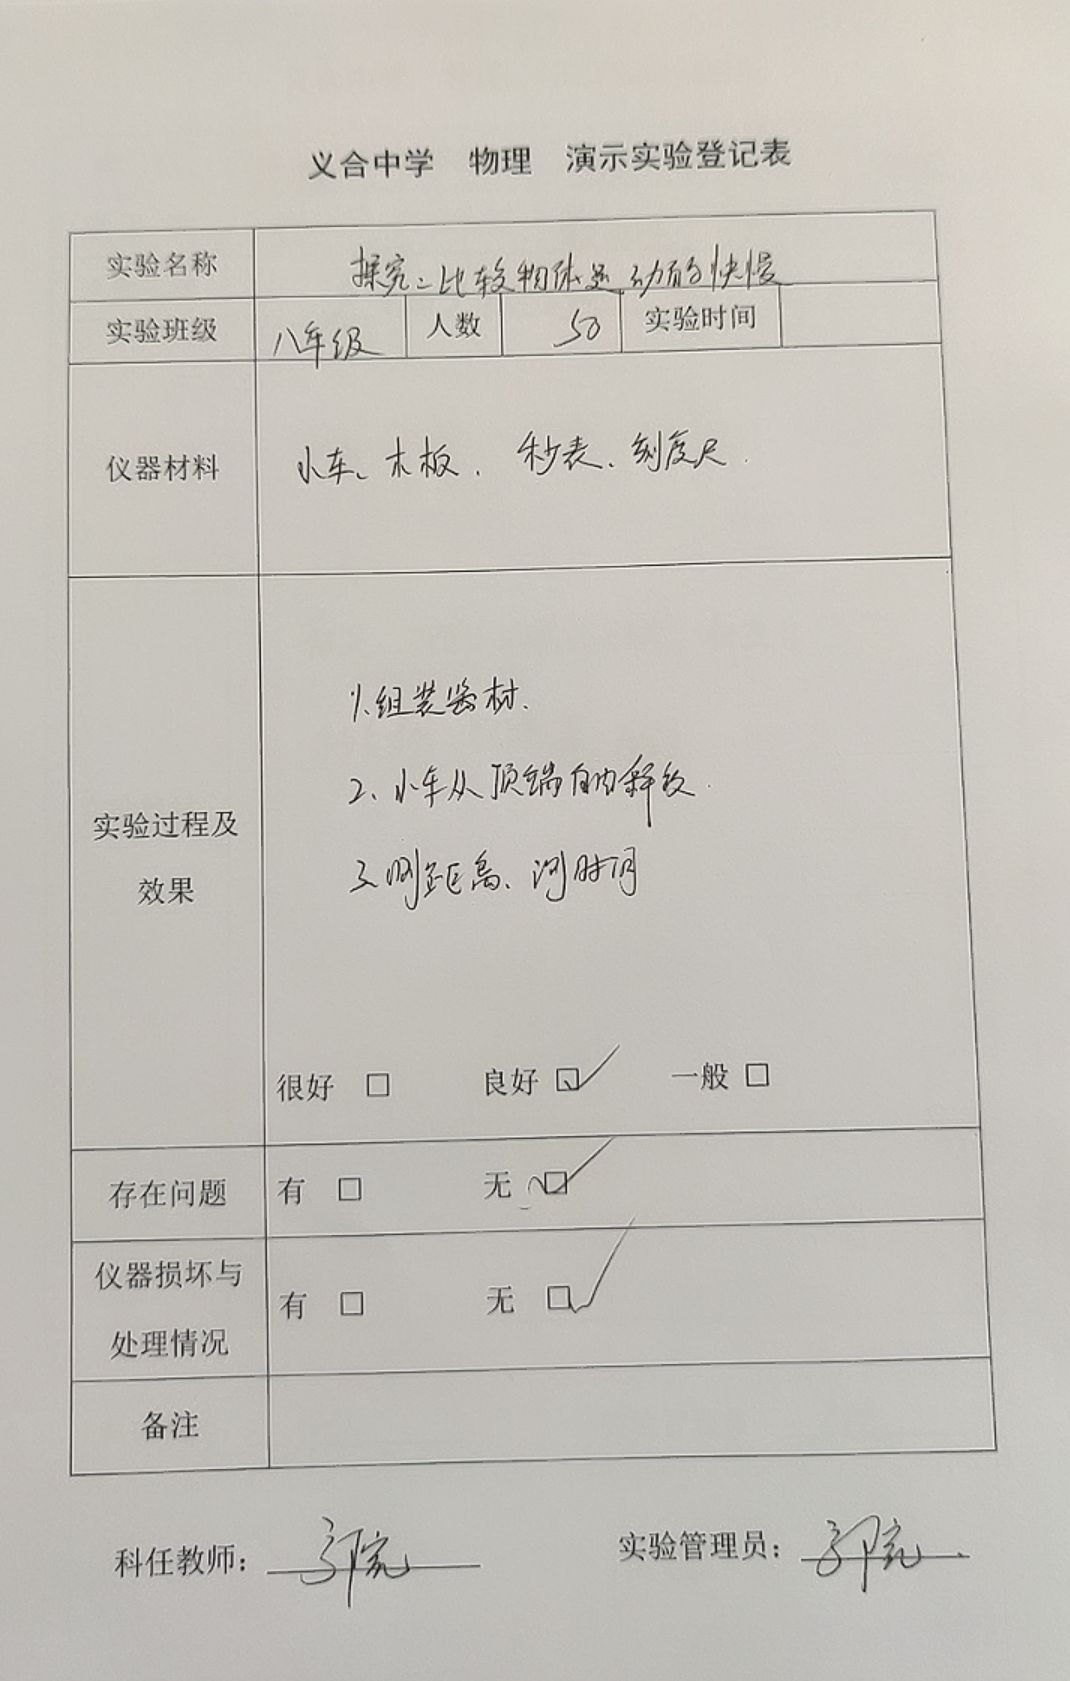 义合中学 物理 演示实验登记表
实验名称 探究:比较物体运动的快慢
实验班级 八年级 人数 50 实验时间
仪器材料 小车、木板、秒表、刻度尺.
1.组装器材.
2、小车从顶端自由释放.
实验过程及
效果
3.测距离、测时间
很好 □ 良好 ☑ 一般 □
存在问题 有 □ 无 ☑
仪器损坏与
处理情况
有 □ 无 ☑
备注
科任教师: 实验管理员: